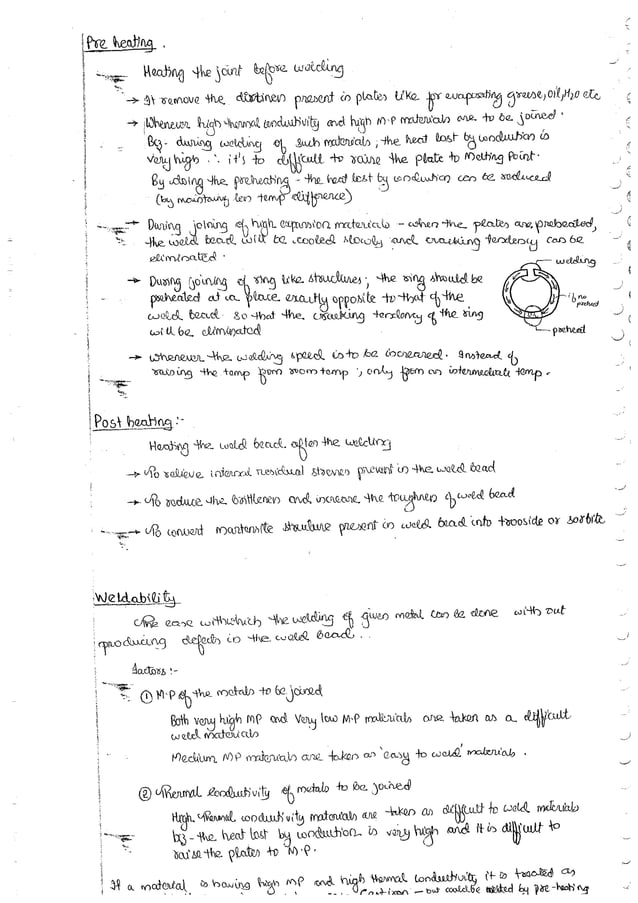 Pre heating.
Heating the joint before welding
→ It remove the dirtiness present in plates like for evaporating grease, oil, H2O etc
→ Whenever high thermal conductivity and high M.P materials are to be joined.
Bcz- during welding of such materials, the heat lost by conduction is
very high ∴ it's to difficult to raise the plate to Melting Point.
By doing the preheating - the heat lost by conduction can be reduced
(by maintaing less temp difference)
→ During joining of high expansion materials - when the plates are, preheated,
the weld bead will be cooled slowly and cracking tendency can be
eliminated.
welding
→ During joining of ring like structures; the ring should be
preheated at a place exactly opposite to that of the
weld bead so that the cracking tendency of the ring
will be eliminated
if no
preheat
preheat
→ whenever the welding speed is to be increased. Instead of
raising the temp from room temp; only from an intermediate temp.
Post heating :-
Heating the weld bead after the welding
→ To relieve internal residual stresses present in the weld bead
→ To reduce the brittleness and increase the toughness of weld bead
→ To convert martensite structure present in weld bead into trooside or sorbite
Weldability
The ease withwhich the welding of given metal can be done with out
producing defects in the weld bead..
factors :-
① M.P of the metals to be joined
Both very high MP and Very low M.P materials are taken as a difficult
weld materials
Medium MP materials are taken as 'easy to weld' materials.
② Thermal conductivity of metals to be joined
High Thermal conductivity materials are taken as difficult to weld materials
bcz - the heat lost by conduction is very high and it is difficult to
raise the plates to M.P.
If a material is having high MP and high thermal conductivity it is treated as
Cast iron - but could be welded by pre-heating